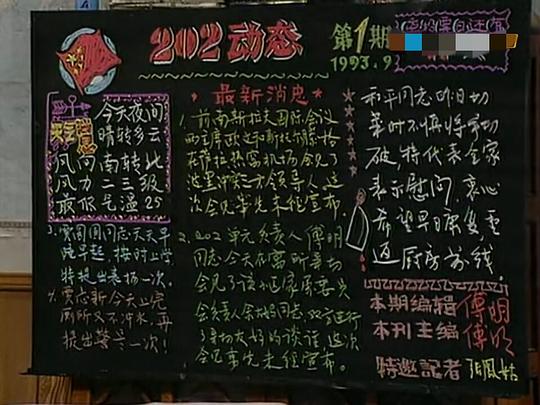 202动态
第1期
1993.9
最新消息
今天夜间
晴转多云
风向南转北
风力二三级
最低气温25
3、贾圆圆同志天天早
晚早起 按时上学
特提出表扬一次。
4、贾志新今天上完
厕所又不冲水,再
提出警告一次!
1、前南斯拉夫国际会议
两主席欧文和斯托尔滕格
在萨拉热窝机场会见了
波黑冲突三方领导人,这
次会见事先未经宣布。
2、202单元负责人傅明
同志今天在寓所等场
会见了该小区居委会
负责人余大妈同志,双方进行
了亲切友好的谈话这次
会见事先未经宣布。
和平同志昨日切
菜时不慎将手切
破,特代表全家
表示慰问,衷心
希望早日康复重
返厨房前线。
本期编辑 傅明
本刊主编 傅明
特邀記者